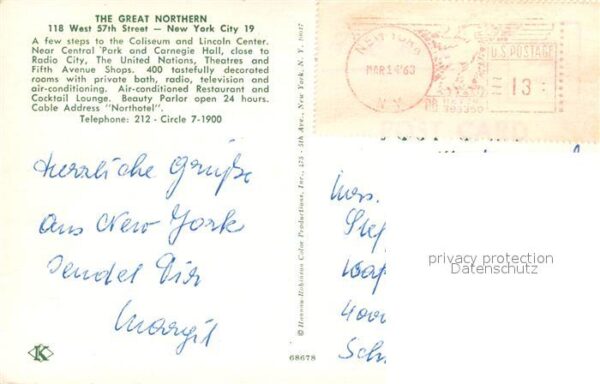 THE GREAT NORTHERN
118 West 57th Street — New York City 19
A few steps to the Coliseum and Lincoln Center.
Near Central Park and Carnegie Hall, close to
Radio City, The United Nations, Theatres and
Fifth Avenue Shops. 400 tastefully decorated
rooms with private bath, radio, television and
air-conditioning. Air-conditioned Restaurant and
Cocktail Lounge. Beauty Parlor open 24 hours.
Cable Address "Northotel"
Telephone: 212 - Circle 7-1900
Herzliche Grüße
aus New York
sendet Dir
Margit
K
© Hannau-Robinson Color Productions, Inc., 475 - 5th Ave., New York, N. Y. 10017
68678
NEW YORK
MAR 14 '63
N.Y.
U.S. POSTAGE
13
PB
METER
POST CARD
Mrs.
privacy protection
Datenschutz